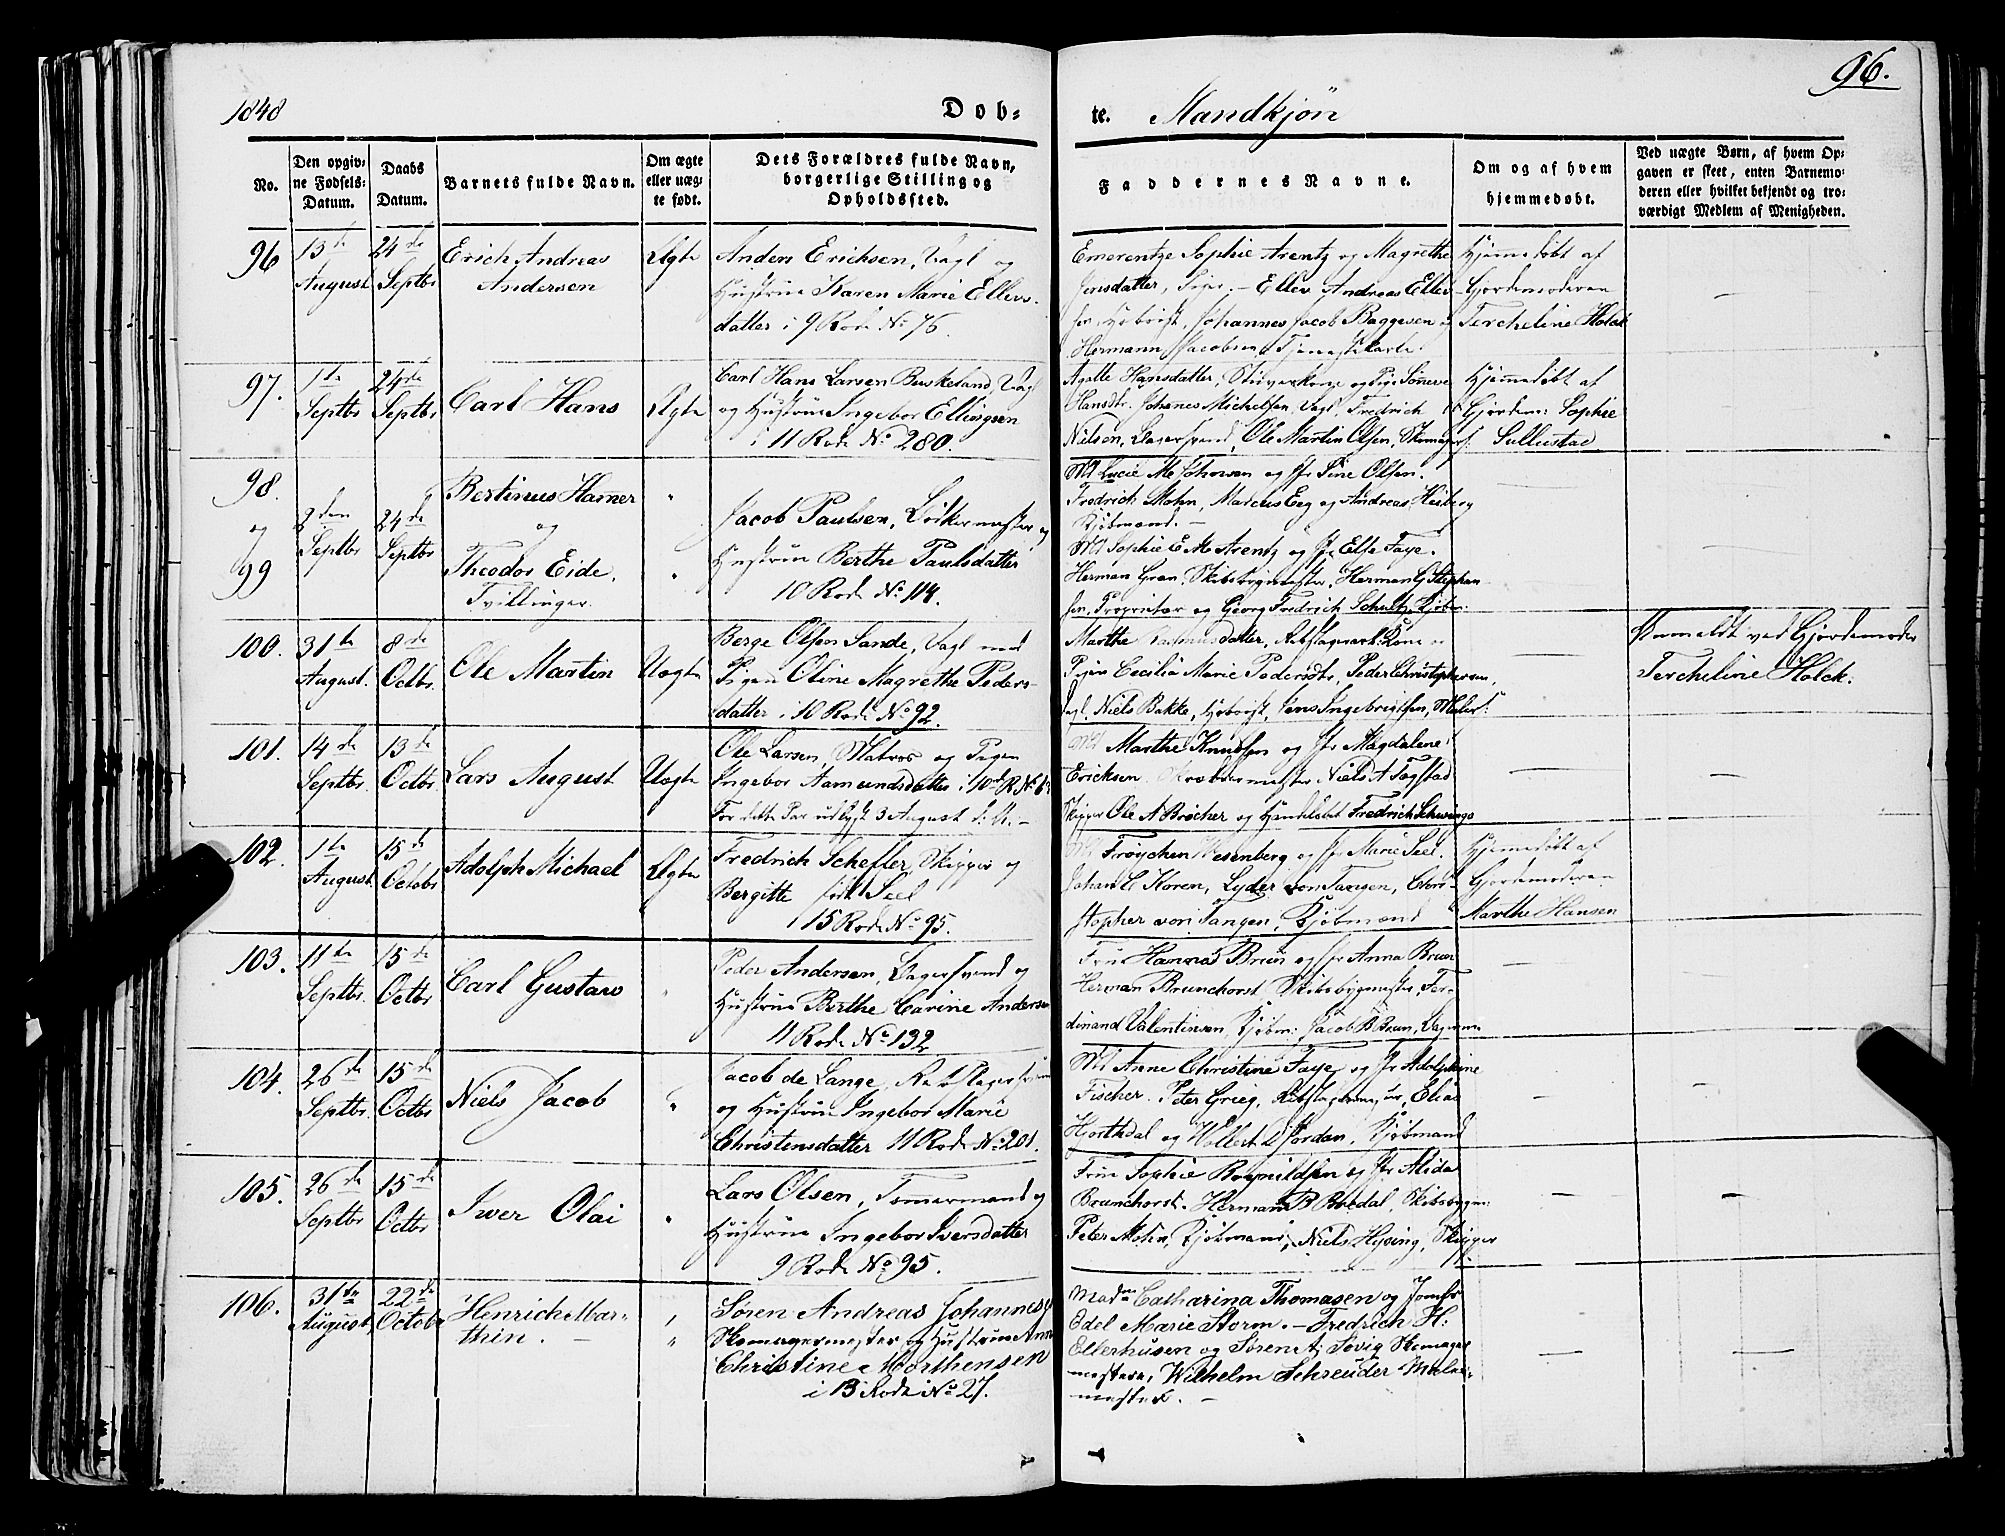 1848
Dob-
te. Mandkjøn
96.
No.
Den opgiv-
ne Fødsels-
Datum.
Daabs
Datum.
Barnets fulde Navn.
Om ægte
eller uæg-
te født.
Dets Forældres fulde Navn,
borgerlige Stilling og
Opholdssted.
Faddernes Navne.
Om og af hvem
hjemmedøbt.
Ved uægte Børn, af hvem Op-
gaven er skeet, enten Barnemo-
deren eller hvilket bekjendt og tro-
værdigt Medlem af Menigheden.
96
13de
August
24de
Septbr
Erich Andreas
Andersen
Ægte
Anders Erichsen, Vagt og
Hustrue Karen Marie Ellevs-
datter i 9 Rode No 76.
Emerentze Sophie Arentz og Magrethe
Jensdatter, Piger. – Ellev Andreas Ellev-
sen, Johannes Jacob Baggesen og
Hermann Jacobsen, Tjenestekarle.
Hjemmedøbt af
Gjordemoderen
Tercheline Holck
–
97.
1te
Septbr
24de
Septbr
Carl Hans
Ægte
Carl Hans Larsen Buskeland, Vagt
og Hustrue Ingebor Ellingsen
i 11 Rode No 280.
Agathe Hansdatter, og Pige Sønneve
Hansdtr. Johanes Michelsen, Vagt, Fredrich
Nielsen, Bagersvend, Ole Martin Olsen, Skomagers:
Hjemmedøbt af
Gjordem: Sophie
Sullestad
98.
og
99
2den
Septbr
24de
Septbr
Bertinus Hamer
og
Theodor Eide,
Tvillinger.
"
"
Jacob Paulsen, Bødkermester og
Hustrue Berthe Paulsdatter
10 Rode No 114.
Md Lucie M Johnsen og Jfr Sine Olsen.
Fredrich Mohn, Marcus Eeg og Andreas Heiberg
Kjøbmænd. –
Md Sophie C M Arentz og Jfr Else Faye.
Herman Gran, Skibsbygmester, Herman G Stephan
sen, Proprietær og Georg Fredrich Schultz, Kjøbm:
–
100.
31te
August.
8de
Octbr.
Ole Martin
Uægte
Berge Olsen Sande, Vagt med
Pigen Oline Magrethe Peders-
datter i 10 Rode No 92.
Marthe Rasmusdatter, Kone og
Pigen Cecilia Marie Pedersdtr, Peder Christophersen,
Vagt, Niels Bakke, Jens Ingebrigtsen, Malers:
Anmeldt ved Gjordemoder
Tercheline Holck.
101.
14de
Septbr.
13de
Octbr.
Lars August
Uægte
Ole Larsen, Matros og Pigen
Ingebor Aamundsdatter i 10de R. No
For dette Par udlyst 3 August d. A. –
Md Marthe Knudsen og Jfr Magdalene
Ericksen. Niels A Fogstad
Skipper Ole A Brøcher og Handelsbet Fredrich Schwings
–
–
102.
1te
August
15de
Octobr
Adolph Michael
Ægte
Fredrich Scheffer, Skipper og
Bergitte født Seel
i 15 Rode No 95.
Md Frøychen Wesenberg og Jfr Marie Seel.
Johan C Koren, Lyder von Tangen, Chri-
stopher von Tangen, Kjøbmænd
Hjemmedøbt af
Gjordemoderen
Marthe Hansen
103.
11te
Septbr.
15de
Octbr
Carl Gustav
"
Peder Andersen, Bagersvend og
Hustrue Berthe Carine Andersen
11 Rode No 132
Frue Hanna Bruun og Jfr Anna Brun
Herman Brunchorst Skibsbygmester, Fer-
dinand Valentinsen, Kjøbm: Jacob B Brun,
–
104.
26de
Septbr.
15de
Octbr
Niels Jacob
"
Jacob de Lange, Rebslagersvend
og Hustrue Ingebor Marie
Christensdatter 11 Rode No 201.
Md Anne Christine Faye, og Jfr Adolphine
Fischer. Peter Grieg, Elias
Hjorthdal og Wollert D Jordan, Kjøbmænd
–
–
105.
26de
Septbr
15de
Octbr
Iver Olai
"
Lars Olsen, Tømermand og
Hustrue Ingebor Iversdatter
9 Rode No 95.
Frue Sophie og Jfr Alida
Brunchorst. Herman B Bredal, Skibsbygm:
Peter Mohn, Kjøbmand, Niels Hysing, Skipper
–
–
106.
31te
August,
22de
Octobr
Henrich Mar-
thin. –
"
Søren Andreas Johannesen
Skomagermester og Hustrue Anne
Christine Morthensen
i 13 Rode No 27.
Madm Catharina Thomasen og Jomfr
Edel Marie Storm. – Fredrich H:
Ellerhusen og Søren A: Søvig Skomager
mestere, Wilhelm Schreuder Maler-
mester. –
–
–